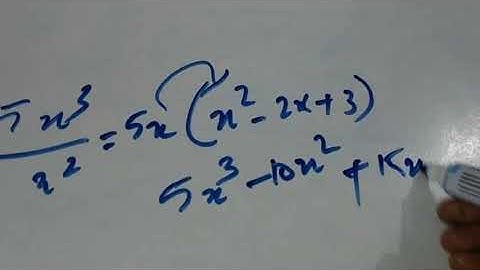 5x³/x² = 5x(x² - 2x + 3)
5x³ - 10x² + 15x